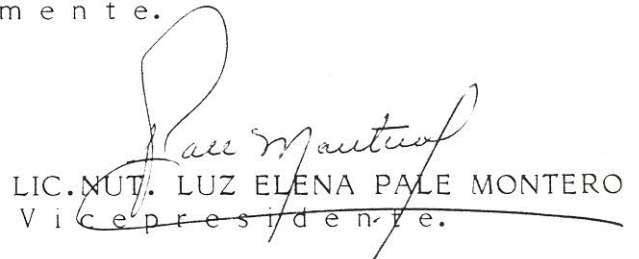 m e n t e.
Pale Montero
LIC.NUT. LUZ ELENA PALE MONTERO
V i c e p r e s i d e n t e.